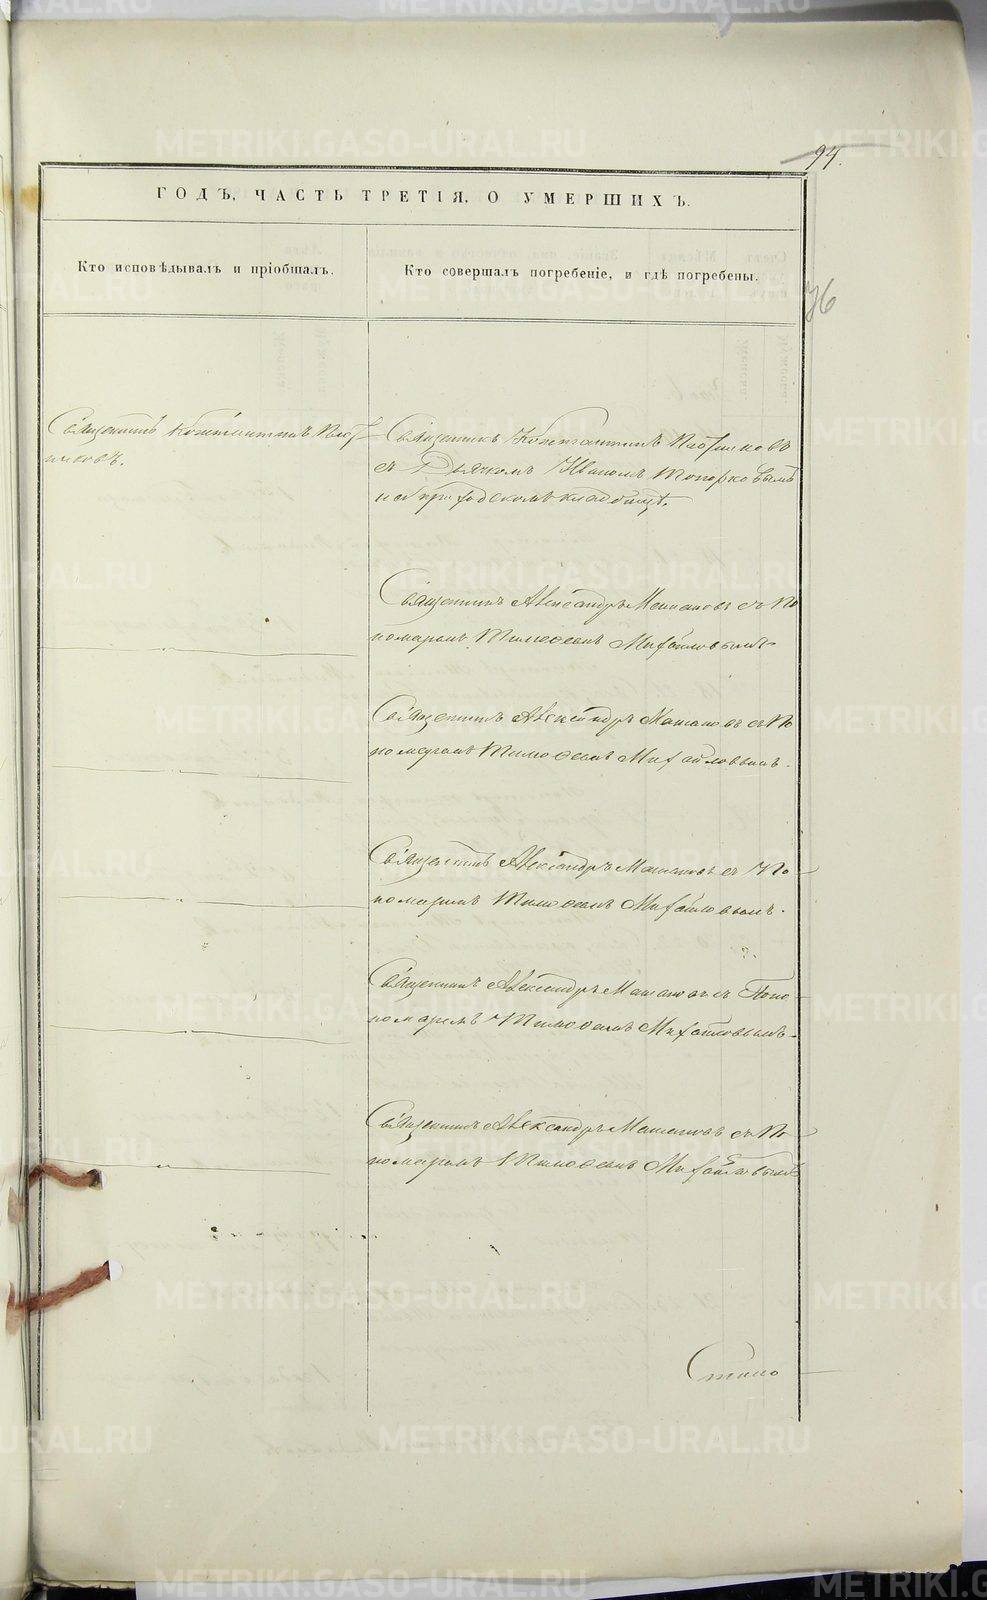 94.
ГОДЪ, ЧАСТЬ ТРЕТІЯ, О УМЕРШИХЪ.
Кто исповѣдывалъ и пріобщалъ.
Кто совершалъ погребеніе, и гдѣ погребены.
76
Священникъ Константинъ
никовъ.
Священникъ Константинъ
съ Дьячкомъ Иваномъ Топорковымъ
на приходскомъ кладбищѣ.
Священникъ Александръ съ По
номаремъ Тимоѳеемъ Михайловымъ
Священникъ Александръ съ По
номаремъ Тимоѳеемъ Михайловымъ.
Священникъ Александръ съ По
номаремъ Тимоѳеемъ Михайловымъ.
Священникъ Александръ съ Поно
номаремъ Тимоѳеемъ Михайловымъ.
Священникъ Александръ съ По
номаремъ Тимоѳеемъ Михайловымъ
METRIKI.GASO-URAL.RU